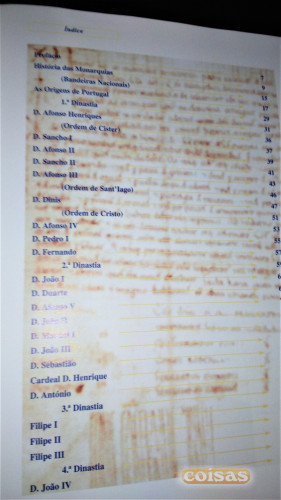 Índice
Prefácio
História das Monarquias 7
(Bandeiras Nacionais) 9
As Origens de Portugal 15
1.ª Dinastia 17
D. Afonso Henriques 29
(Ordem de Cister) 31
D. Sancho I 36
D. Afonso II 37
D. Sancho II 39
D. Afonso III 41
(Ordem de Sant'Iago) 43
D. Dinis
(Ordem de Cristo) 47
D. Afonso IV 51
D. Pedro I 53
D. Fernando 55
2.ª Dinastia
D. João I
D. Duarte
D. Afonso V
D. João II
D. Manuel I
D. João III
D. Sebastião
Cardeal D. Henrique
D. António
3.ª Dinastia
Filipe I
Filipe II
Filipe III
4.ª Dinastia
D. João IV
coisas